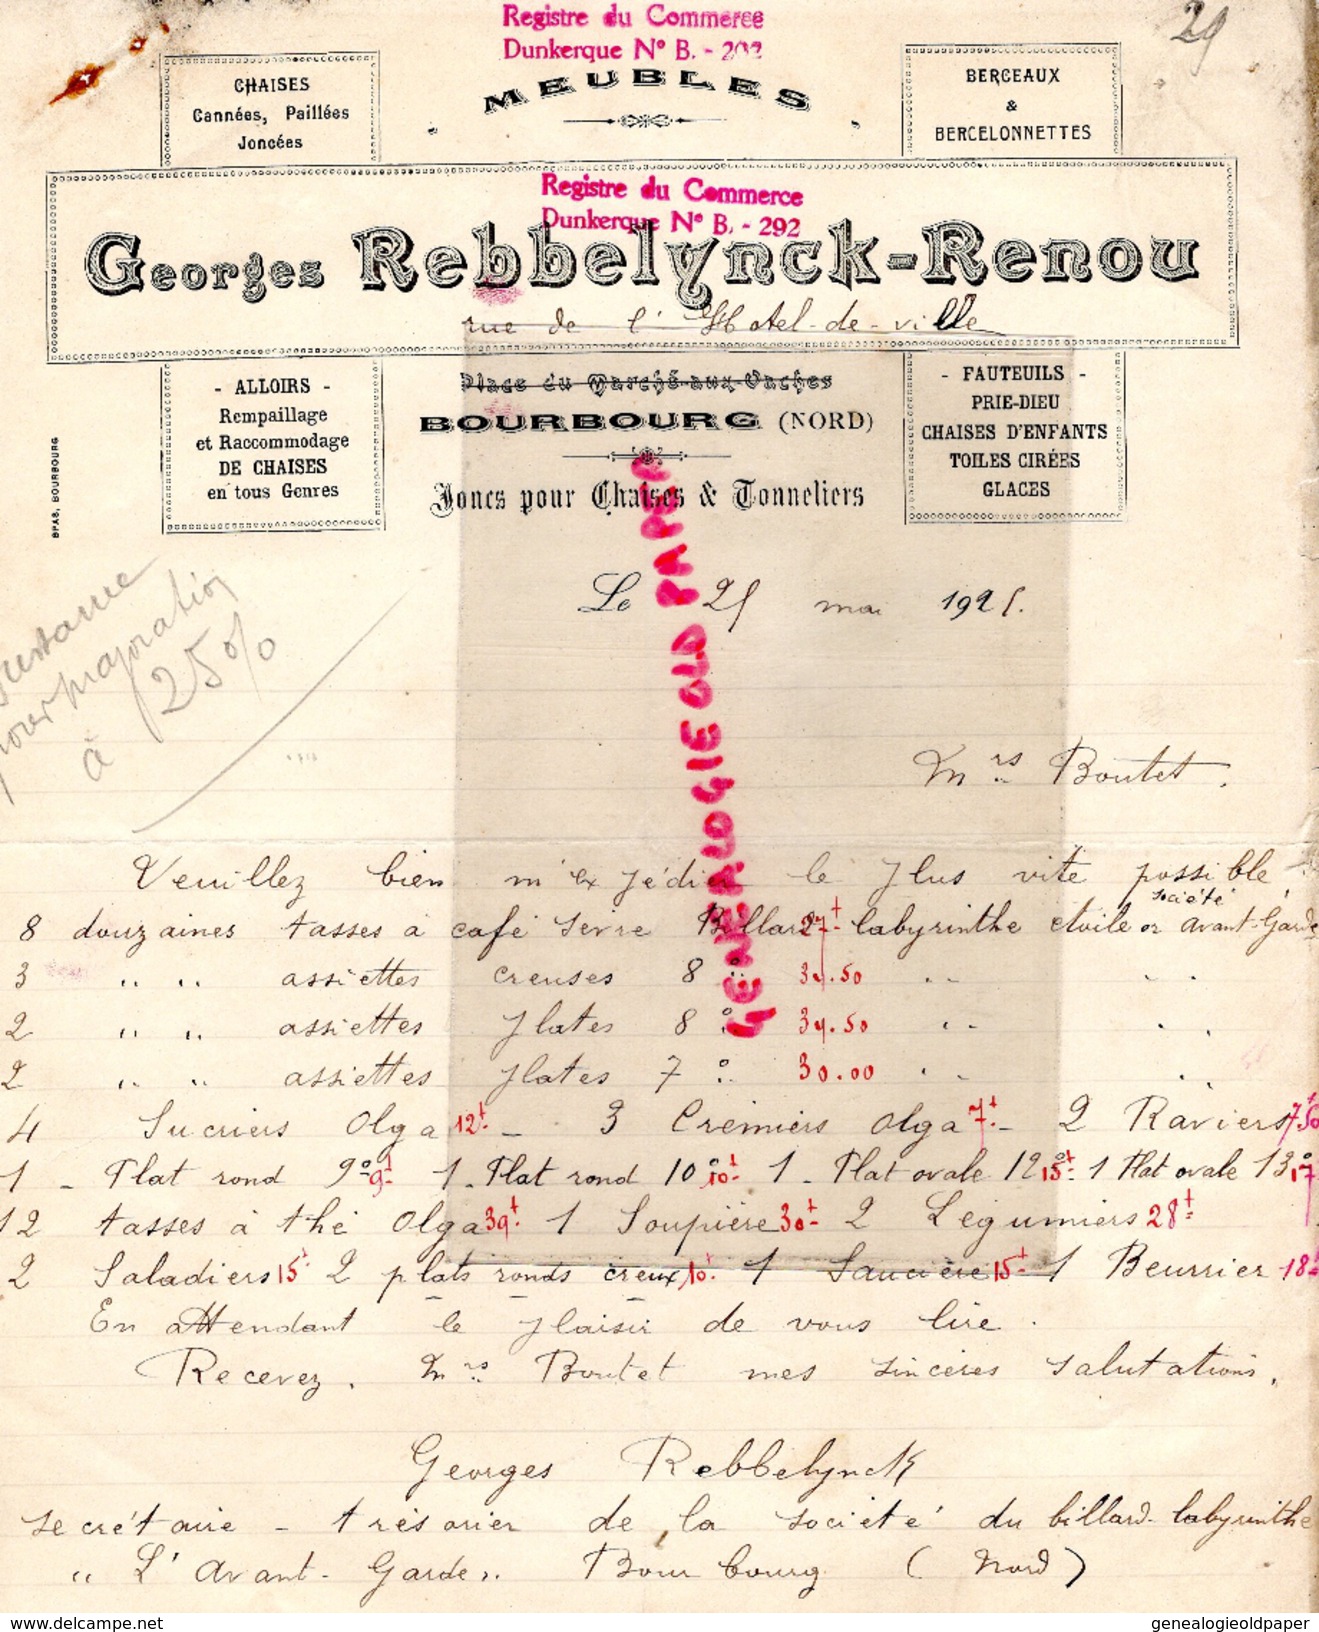 Registre du Commerce
Dunkerque N° B. - 292
29
CHAISES
Cannées, Paillées
Joncées
MEUBLES
BERCEAUX
&
BERCELONNETTES
Registre du Commerce
Dunkerque N° B. - 292
Georges Rebbelynck-Renou
rue de l'Hotel-de-ville
Place du Marché-aux-Vaches
BOURBOURG (NORD)
Joncs pour Chaises & Tonneliers
- ALLOIRS -
Rempaillage
et Raccommodage
DE CHAISES
en tous Genres
- FAUTEUILS -
PRIE-DIEU
CHAISES D'ENFANTS
TOILES CIRÉES
GLACES
BPAS, BOURBOURG
GENEALOGIE OLD PAPER
Le 25 mai 1925.
pour majoration
à 25%
Mrs Boutet.
Veuillez bien m'expédier le plus vite possible
société
8 douzaines tasses à café Sèvre Billard 27f labyrinthe etoile or avant-Garde
3 " " assiettes creuses 8° 34.50 " "
2 " " assiettes plates 8° 34.50 " "
2 " " assiettes plates 7° 30.00 " "
4 Sucriers Olga 12f - 3 Crémiers Olga 7f - 2 Raviers 7.50
1 - Plat rond 9° 9f 1 - Plat rond 10° 10f 1 - Plat ovale 12° 15f 1 Plat ovale 13° 17
12 tasses à thé Olga 39f 1 Soupière 30f 2 Légumiers 28f
2 Saladiers 15f 2 plats ronds creux 10f 1 Saucière 15f 1 Beurrier 18f
En attendant le plaisir de vous lire.
Recevez, Mrs Boutet mes sincères salutations,
Georges Rebbelynck
secrétaire - trésorier de la société du billard-labyrinthe
"L'Avant-Garde" Bourbourg (Nord)
www.delcampe.net
genealogieoldpaper